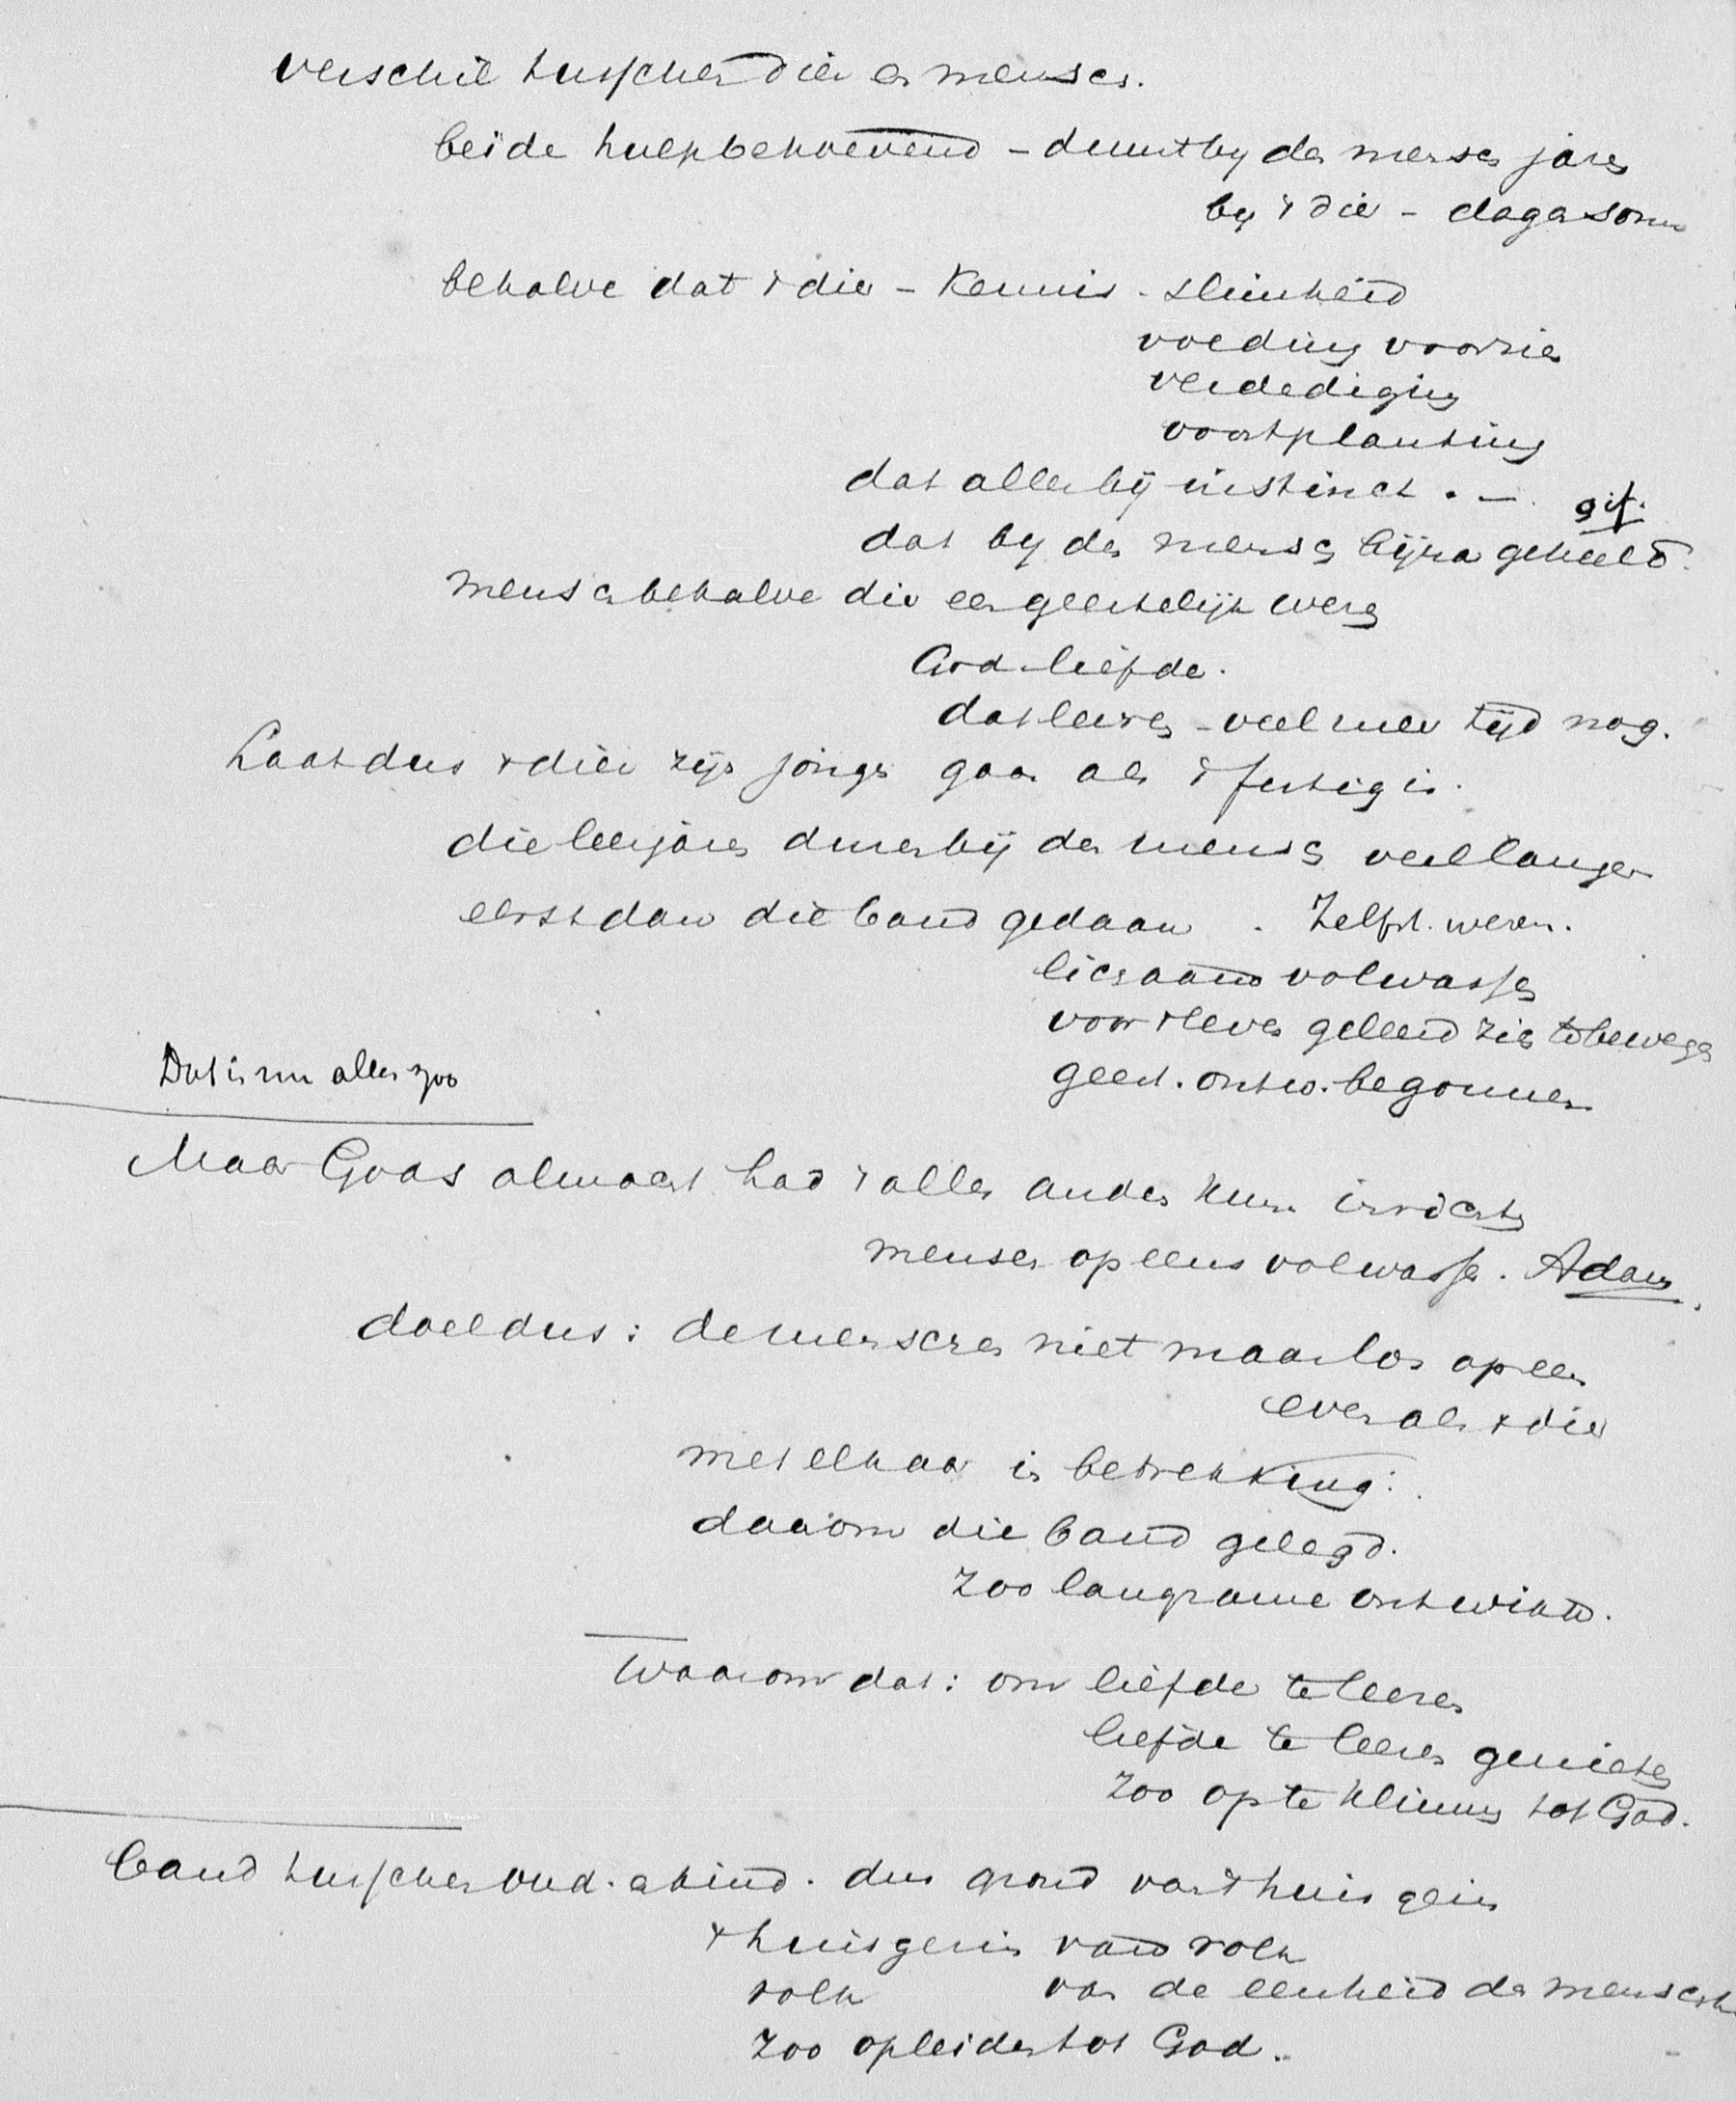 verschil tusschen dier en mensch.
beide hulpbehoevend – duurt bij den mensch jaren
bij 't dier – dagen soms
behalve dat 't dier – kennis – slimheid
voeding voorzien
verdediging
voortplanting
dat alles bij instinct . —
dat bij den mensch bijna geheel 0.
mensch behalve dier een geestelijk wezen
God – liefde.
dat leeren – veel meer tijd nog.
Laat dus 't dier zijn jongs gaan als 't fertig is.
die leerjaren duren bij den mensch veel langer
eerst dan die band gedaan . Zelfst. wezen.
lichaam volwassen
voor 't leven geleerd zich te bewegen
geest. ontw. begonnen
Dat is nu alles zoo
Maar Gods almacht had 't alles anders kunnen inrichten
menschen opeens volwassen. Adam.
doel dus: de menschen niet maar los opeen
even als 't dier
met elkaar in betrekking:
daarom die band gelegd.
zoo langzame ontwikk.
Waarom dat: om liefde te leeren
liefde te leeren genieten
zoo op te klimmen tot God.
Band tusschen oud. en kind. dus grond van 't huisgezin
't huisgezin van 't volk
volk van de eenheid der menschh.
zoo opleiden tot God.